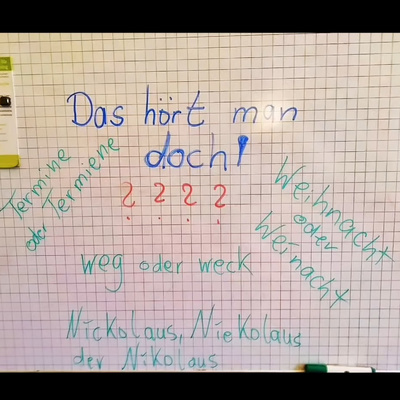 Das hört man
doch!
? ? ? ?
Termine
oder Termiene
Weihnacht
oder
Weinacht
weg oder weck
Nickolaus, Niekolaus
der Nikolaus